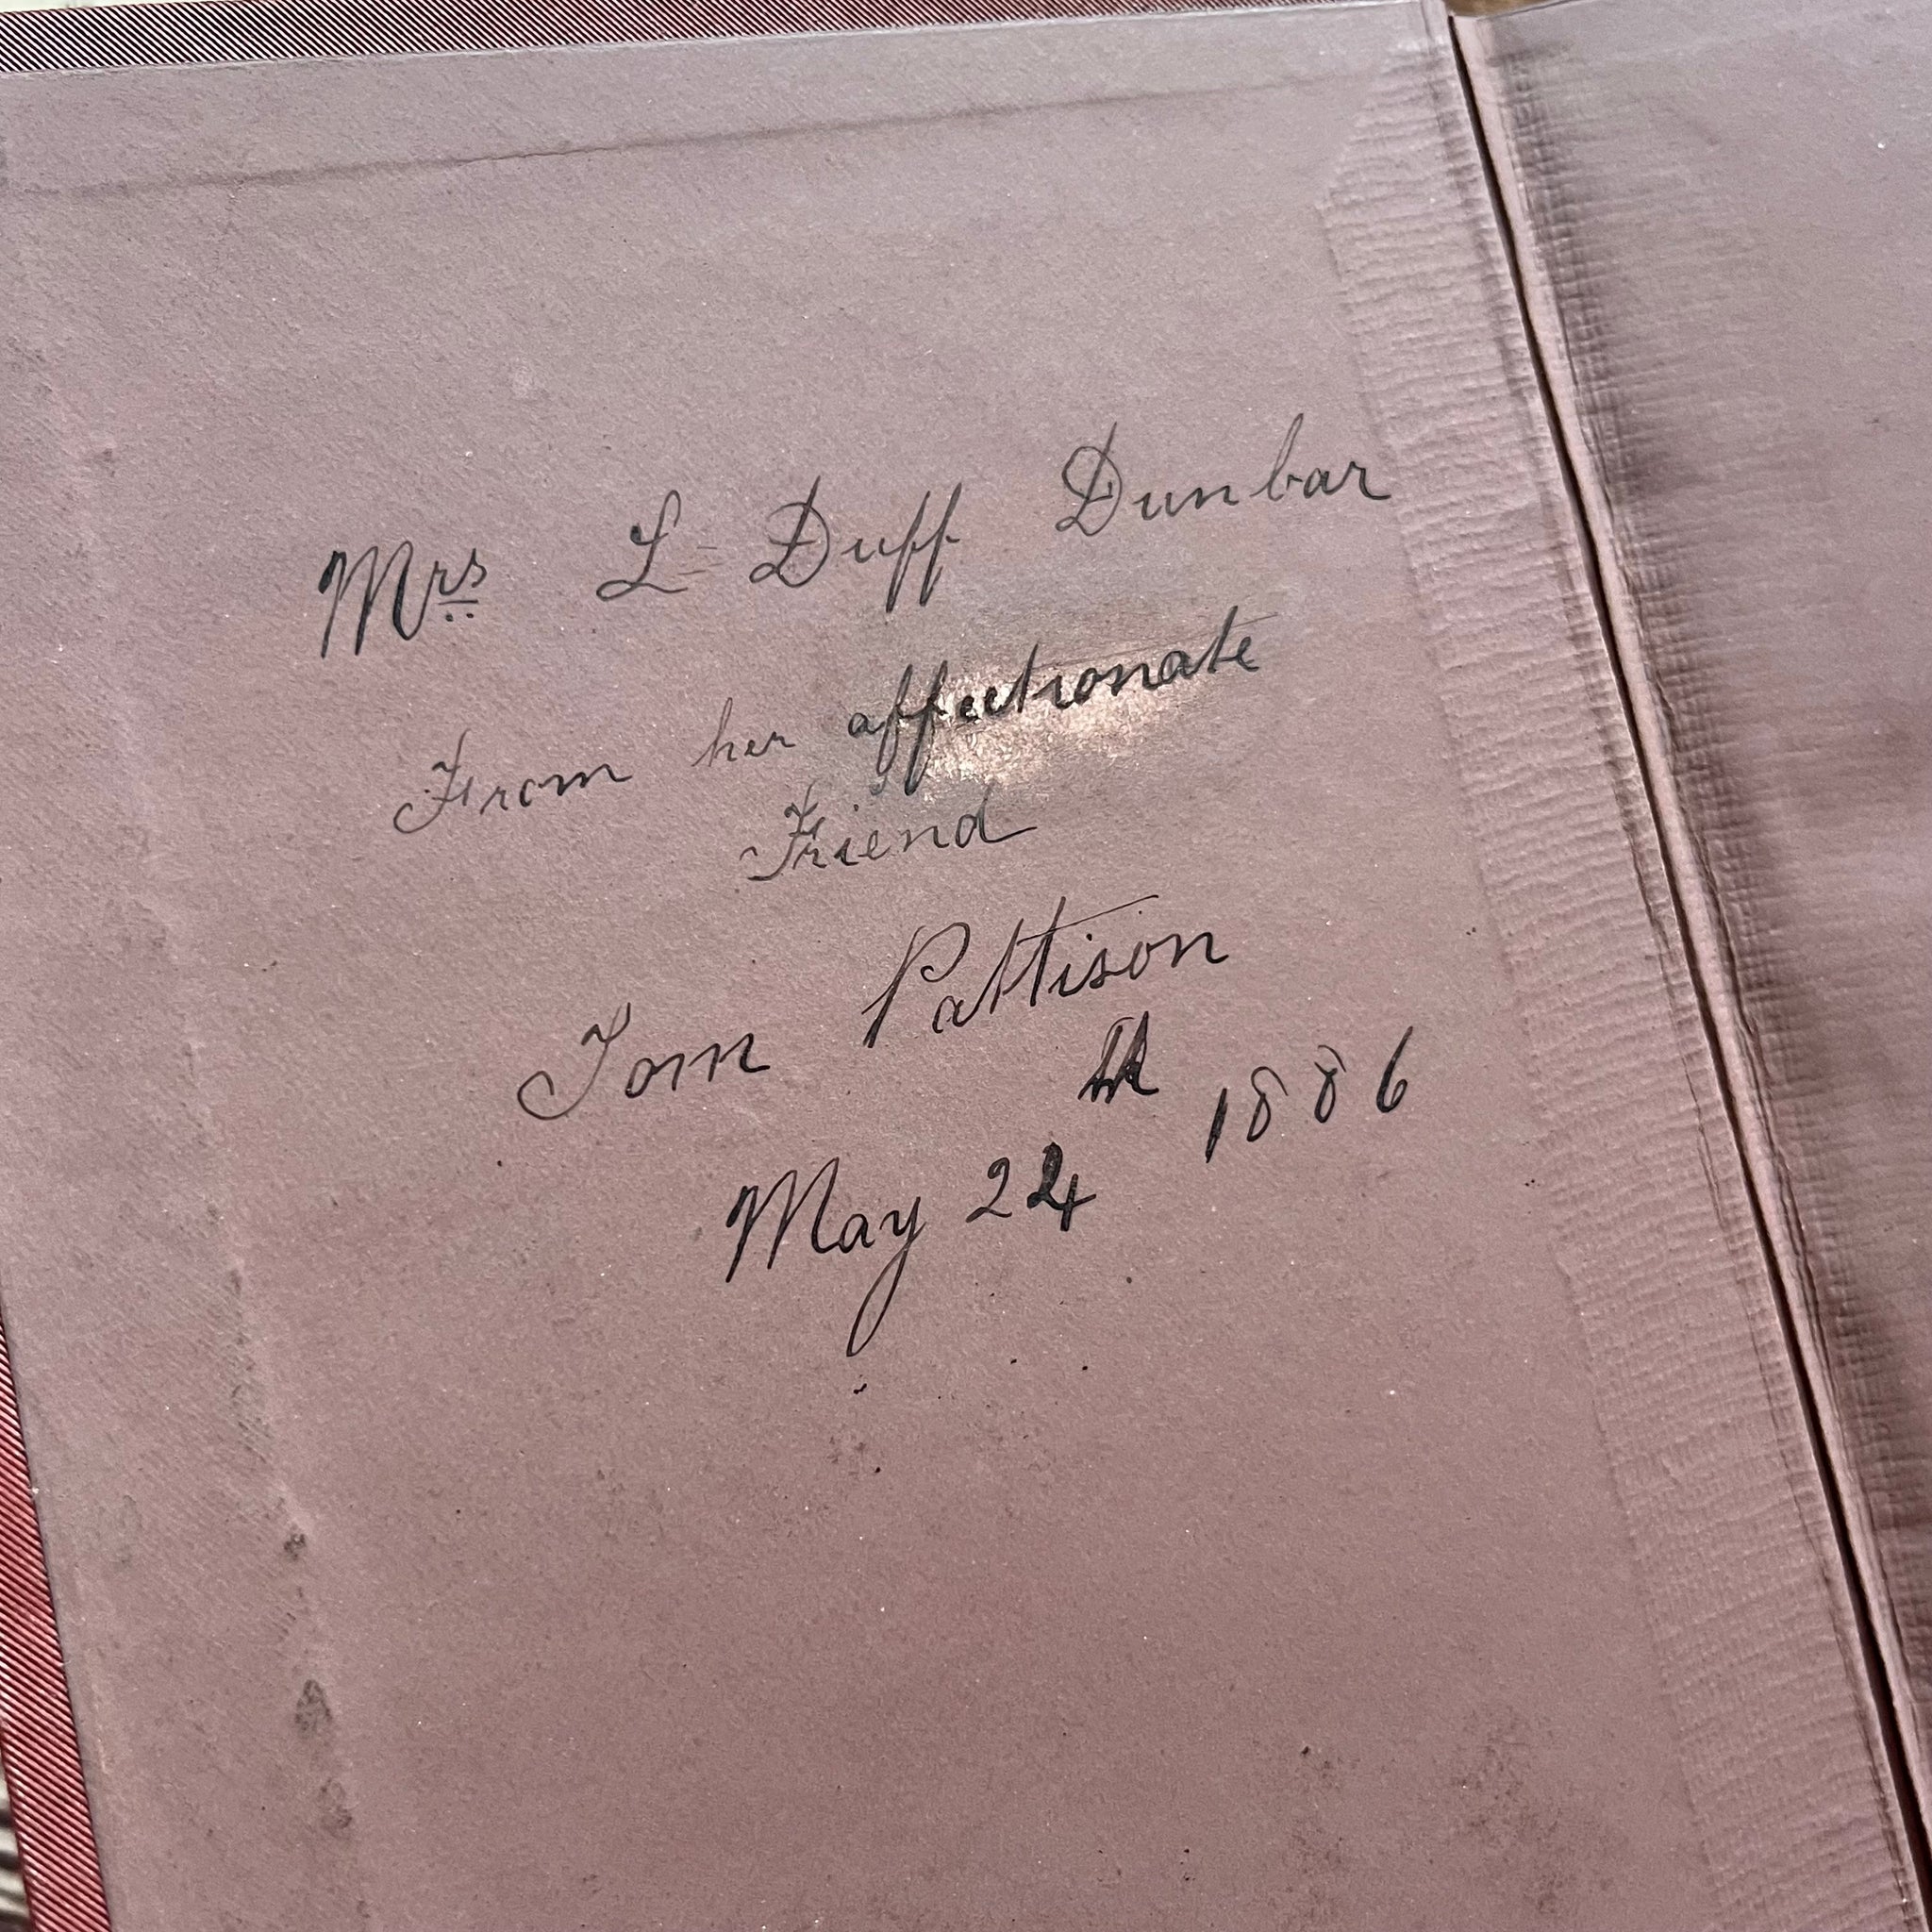 Mrs L Duff Dunbar
From her affectionate
Friend
Tom Pattison
May 24th 1886